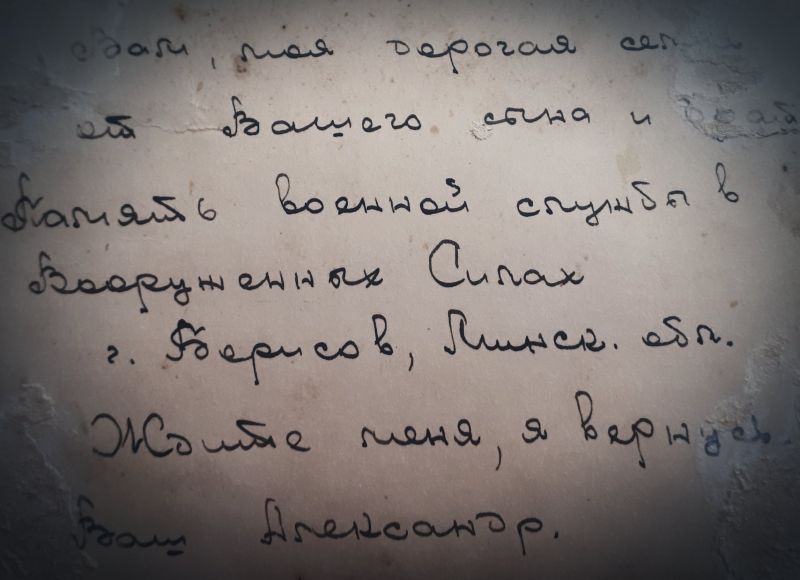 Вам, моя дорогая
от Вашего сына и
Память военной службы в
Вооруженных Силах
г. Борисов, Минск. обл.
Ждите меня, я вернусь.
Ваш Александр.